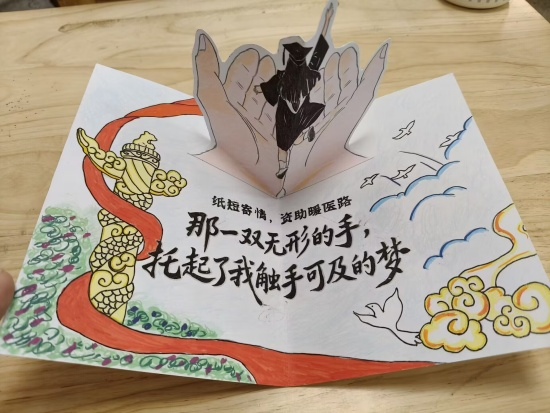 纸短寄情，资助暖医路
那一双无形的手，
托起了我触手可及的梦